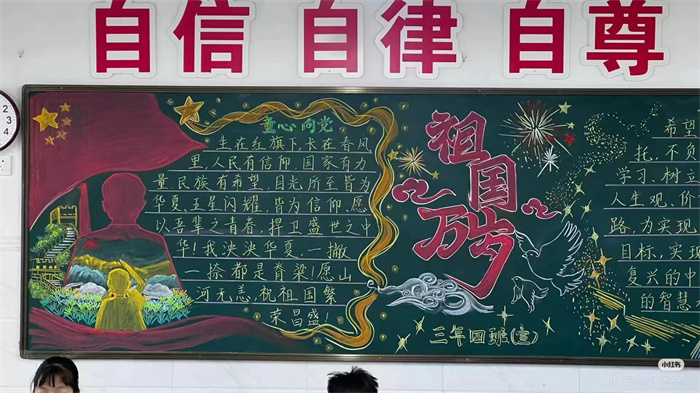 自信 自律 自尊
童心向党
生在红旗下,长在春风
里,人民有信仰,国家有力
量,民族有希望,目光所至皆为
华夏,五星闪耀,皆为信仰,愿
以吾辈之青春,捍卫盛世之中
华!我泱泱华夏,一撇
一捺都是脊梁!愿山
河无恙,祝祖国繁
荣昌盛!
祖国
万岁
三年四班(宣)
希望
托,不负
学习,树立
人生观、价
路,为实现
目标,实现
复兴的
的智慧
小红书
2
3
4